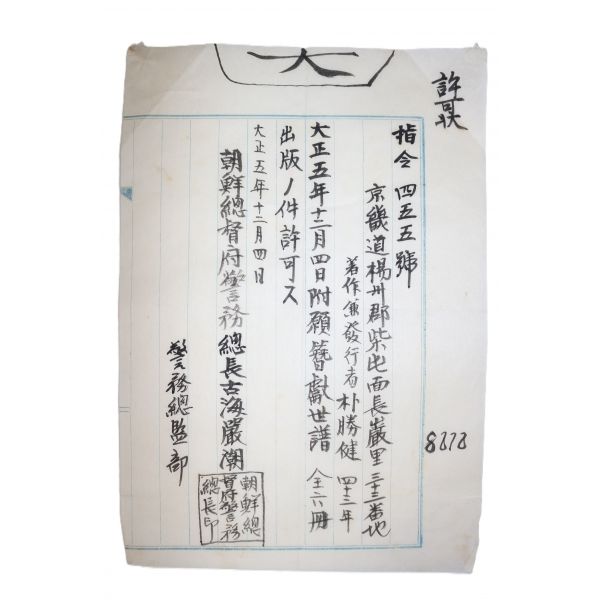 許可狀
指令四五五號
京畿道楊州郡柴屯面長巖里三十三番地
著作兼發行者朴勝健 四十三年
大正五年十二月四日附願簪獻世譜 全六册
出版ノ件許可ス
大正五年十二月四日
朝鮮總督府警務總長古海嚴潮
朝鮮總
督府警務
總長印
警務總監部